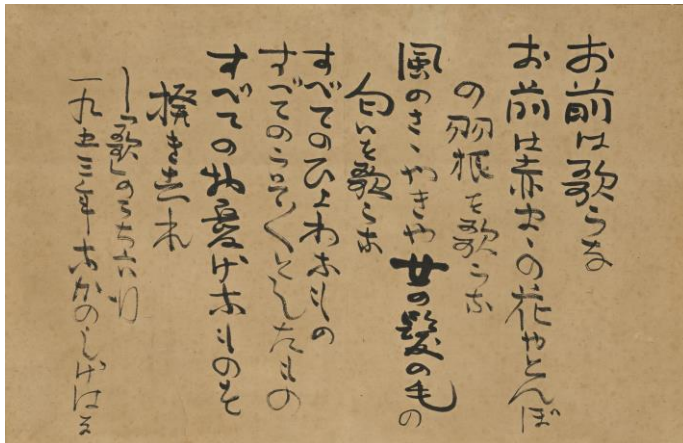 お前は歌うな
お前は赤まゝの花やとんぼ
の羽根を歌うな
風のさゝやきや女の髪の毛の
匂いを歌うな
すべてのひよわなもの
すべてのうそうそとしたもの
すべての物憂げなものを
撥き去れ
―「歌」のうち六行
一九五三年 なかのしげはる